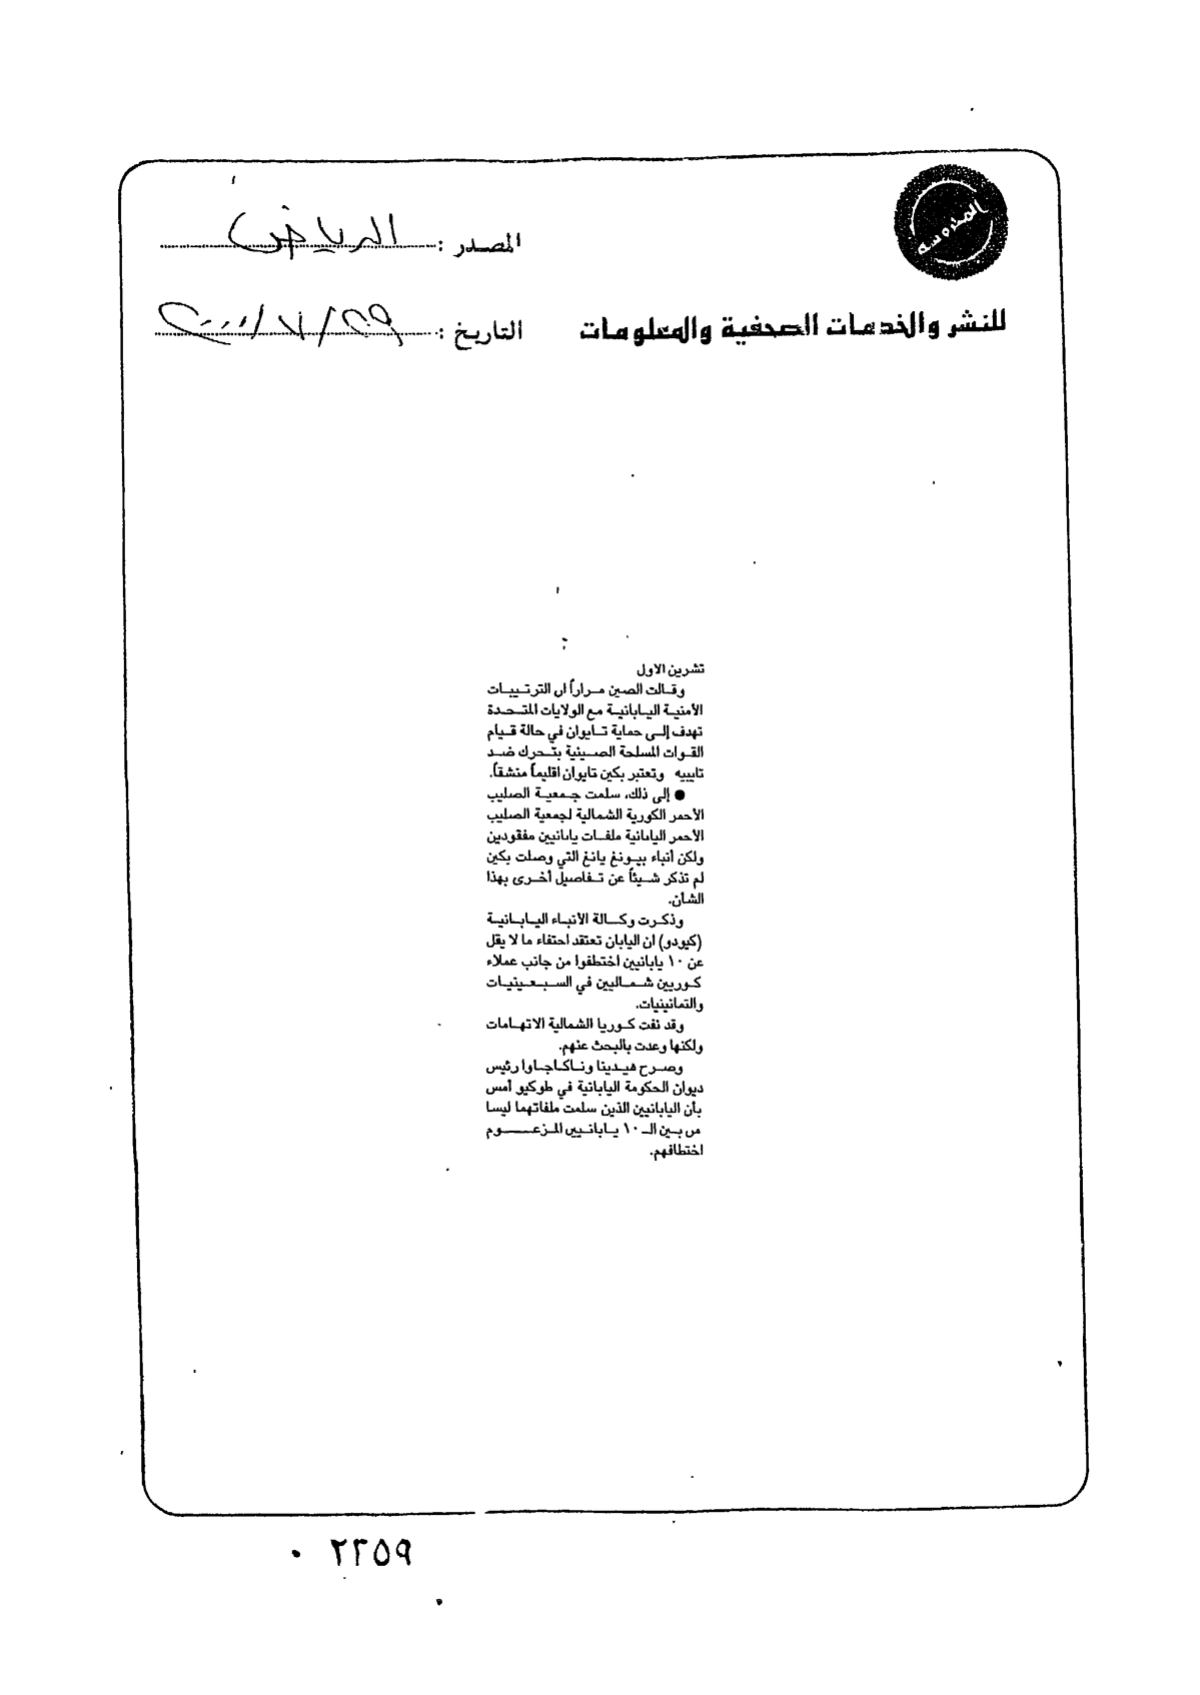 المحروسة
المصدر : الرياض
للنشر والخدمات الصحفية والمعلومات
التاريخ : ٢٩ / ٧ / ٢٠٠٠
تشرين الاول
وقالت الصين مراراً ان الترتيبات
الأمنية اليابانية مع الولايات المتحدة
تهدف إلى حماية تايوان في حالة قيام
القوات المسلحة الصينية بتحرك ضد
تايبيه وتعتبر بكين تايوان اقليماً منشقاً.
● إلى ذلك، سلمت جمعية الصليب
الأحمر الكورية الشمالية لجمعية الصليب
الأحمر اليابانية ملفات يابانيين مفقودين
ولكن أنباء بيونغ يانغ التي وصلت بكين
لم تذكر شيئاً عن تفاصيل أخرى بهذا
الشأن.
وذكرت وكالة الأنباء اليابانية
(كيودو) ان اليابان تعتقد اختفاء ما لا يقل
عن ١٠ يابانيين اختطفوا من جانب عملاء
كوريين شماليين في السبعينيات
والثمانينيات.
وقد نفت كوريا الشمالية الاتهامات
ولكنها وعدت بالبحث عنهم.
وصرح هيدينا وناكاجاوا رئيس
ديوان الحكومة اليابانية في طوكيو أمس
بأن اليابانيين الذين سلمت ملفاتهما ليسا
من بين الـ ١٠ يابانيين المزعوم
اختطافهم.
٢٢٥٩ ٠